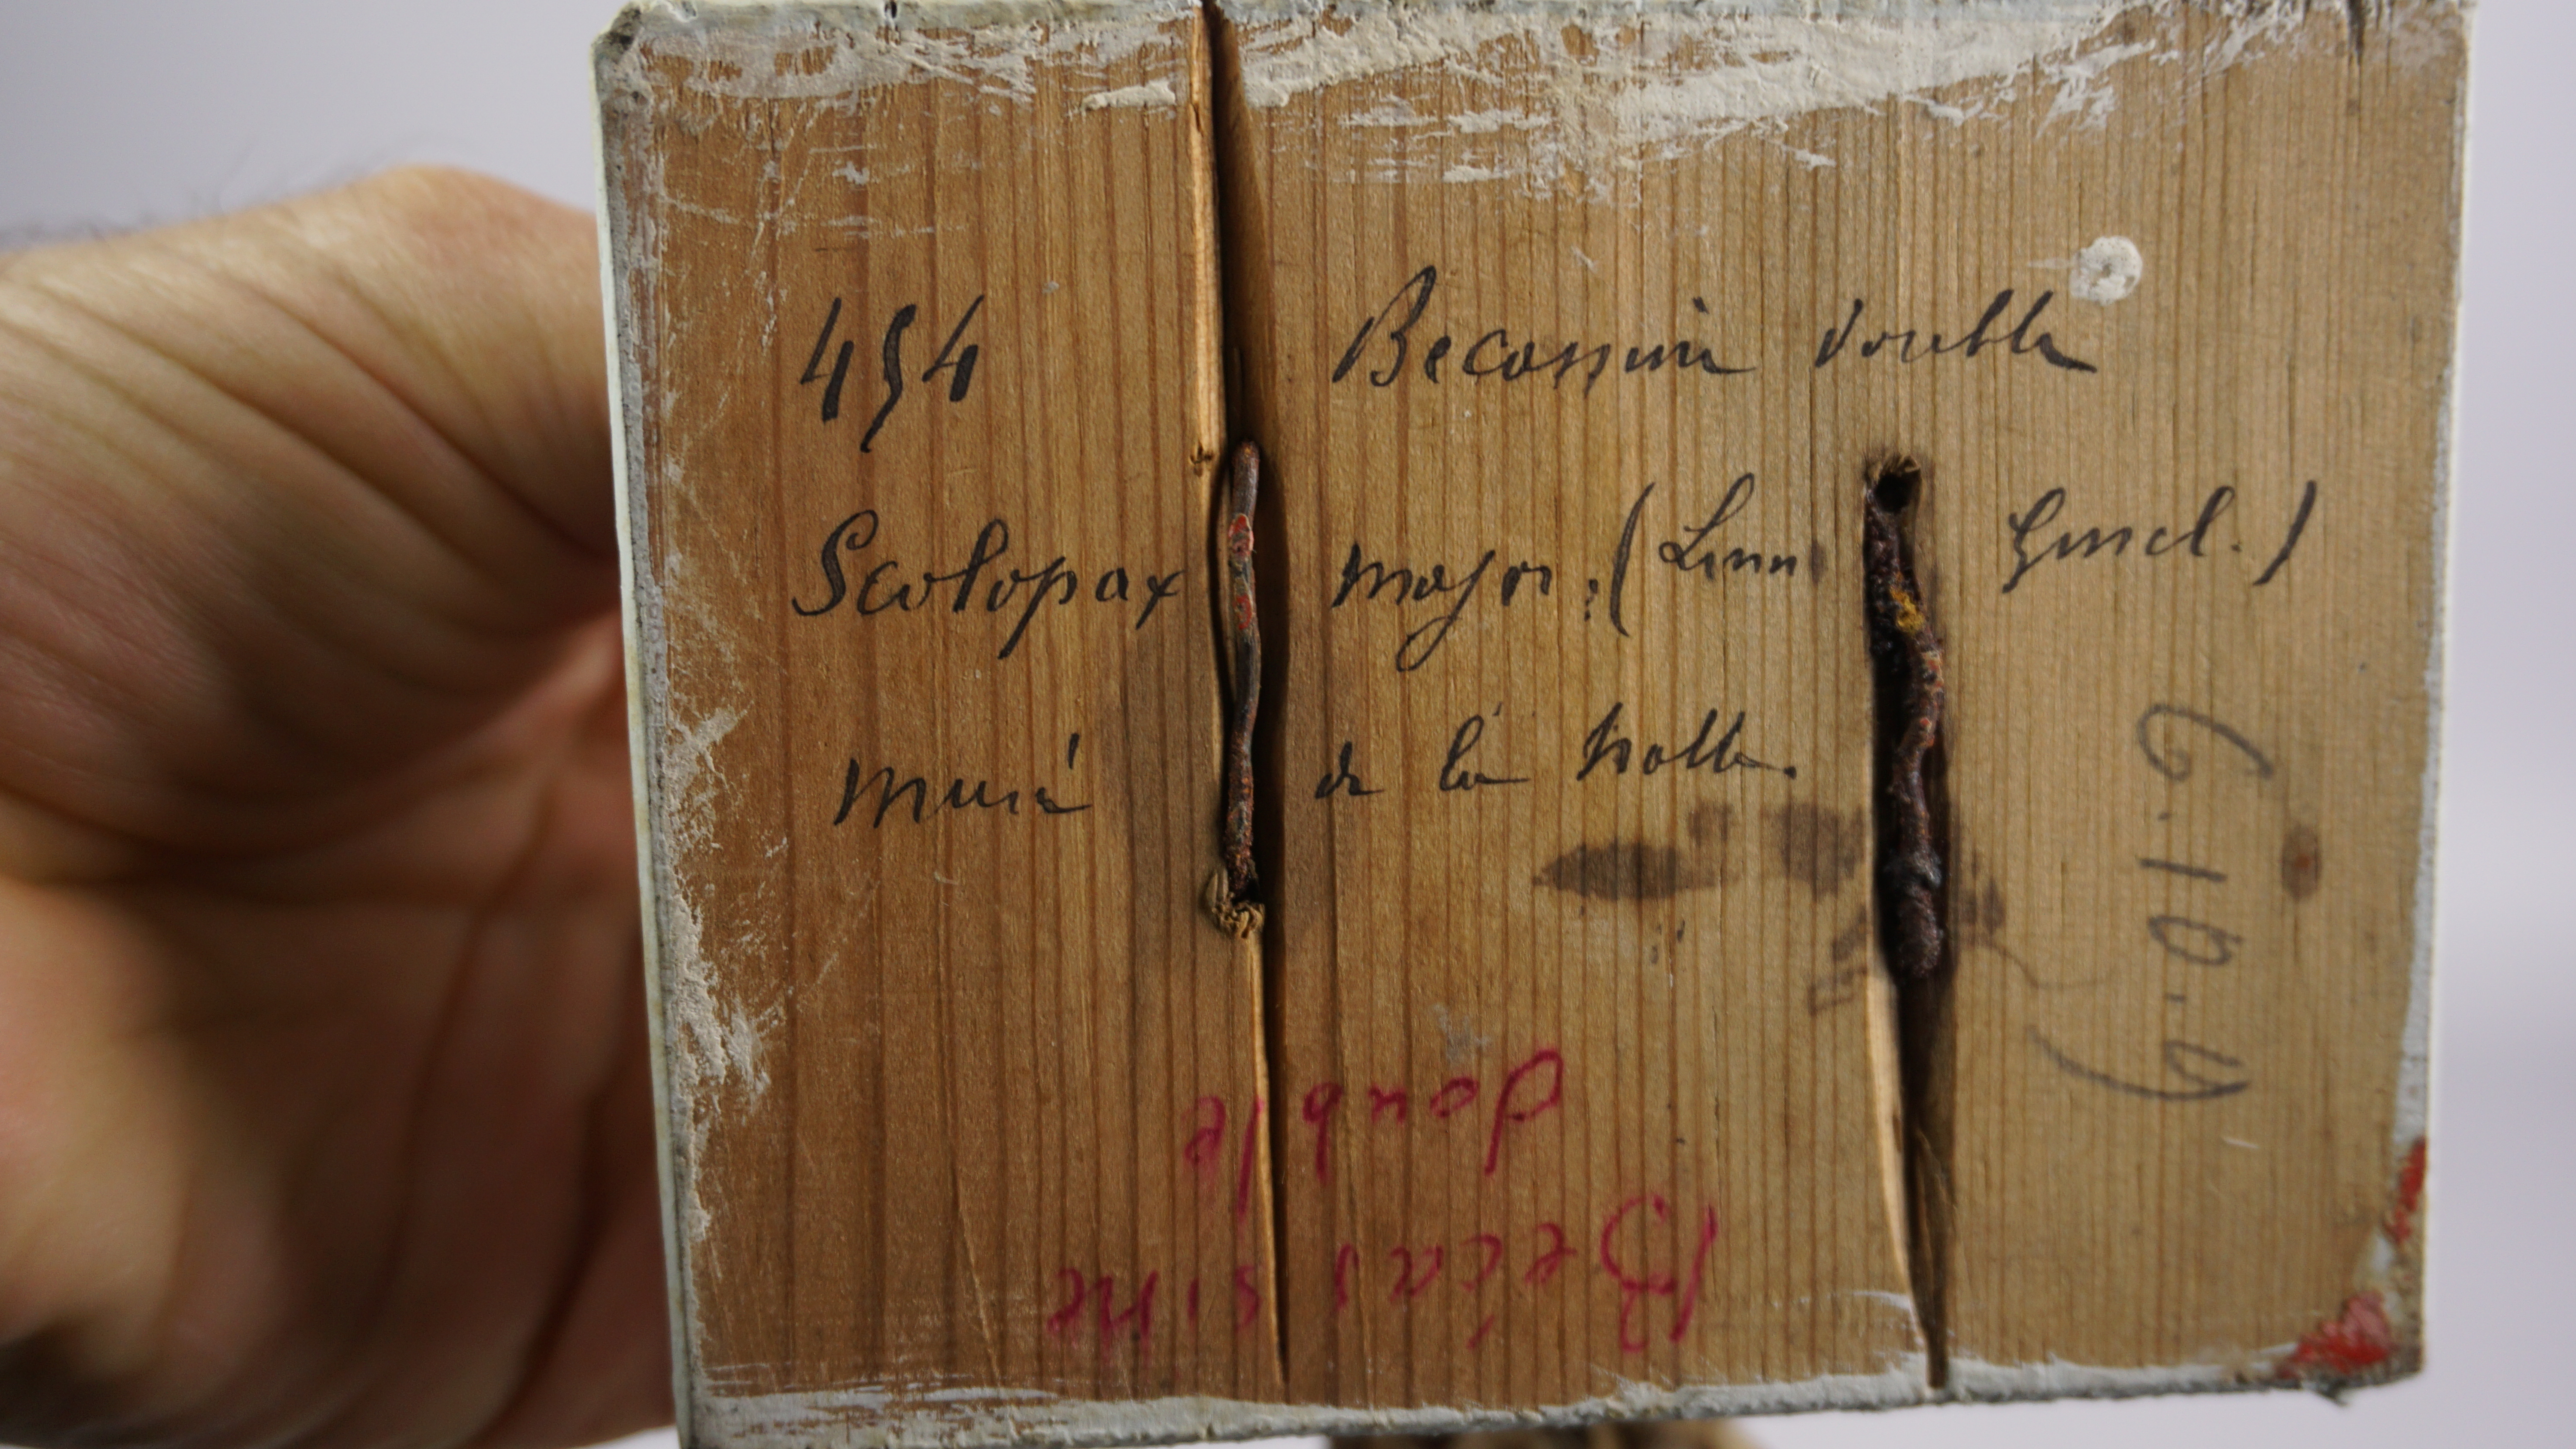 454 Becassine double
Scolopax major. (Linn Gmel.)
de la
Bécassine
double